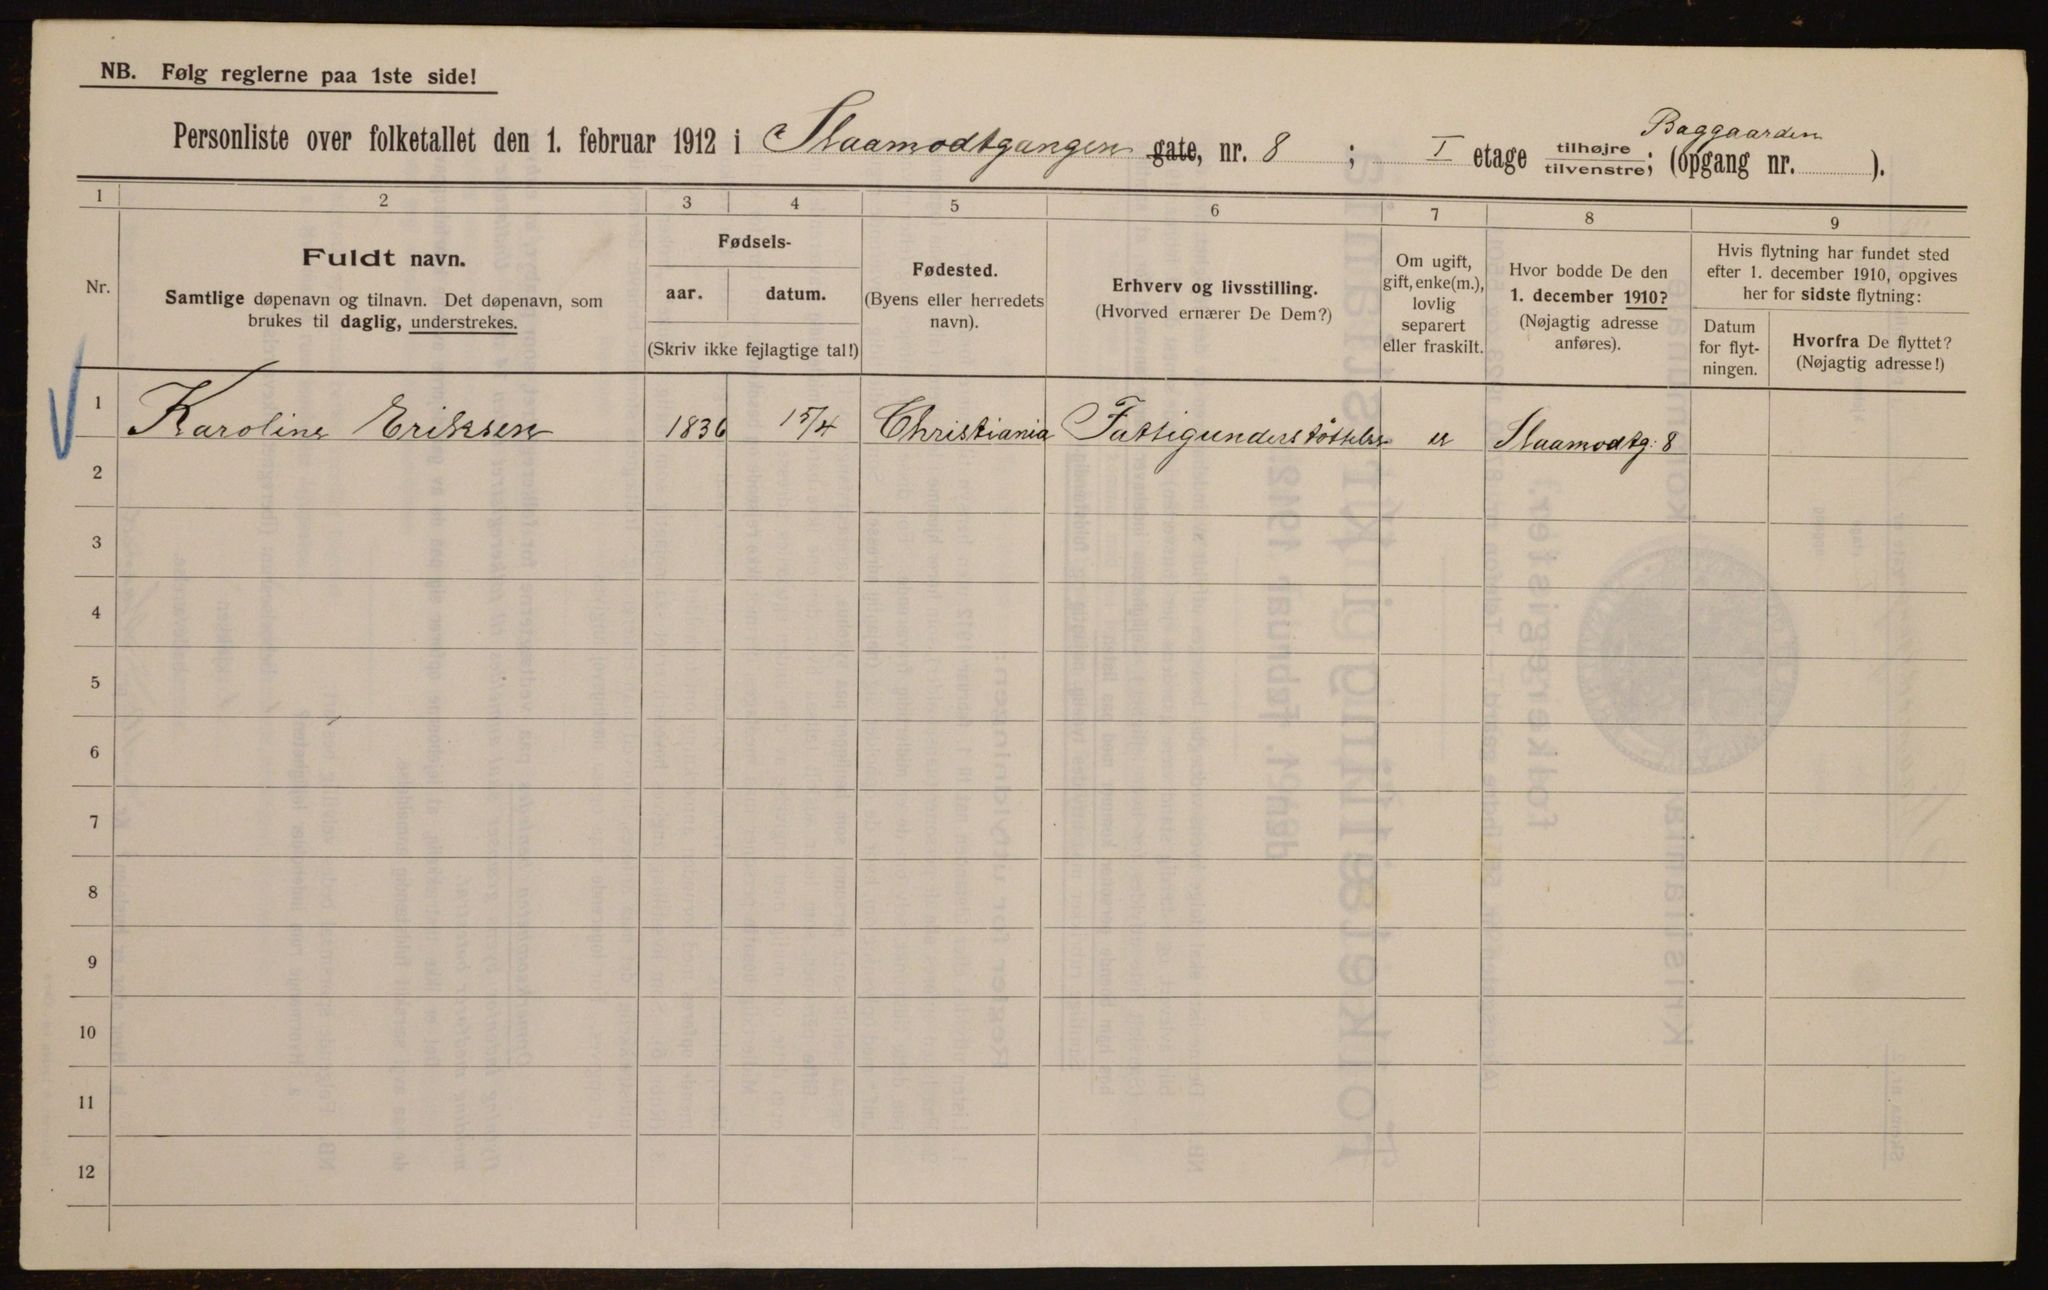 NB. Følg reglerne paa 1ste side!
Baggaarden
Personliste over folketallet den 1. februar 1912 i Slaamodtgangen gate, nr. 8 ; I etage tilhøjre tilvenstre; (opgang nr. ).
1 2 3 4 5 6 7 8 9
Nr.
Fuldt navn.
Samtlige døpenavn og tilnavn. Det døpenavn, som
brukes til daglig, understrekes.
Fødsels-
aar. datum.
(Skriv ikke fejlagtige tal!)
Fødested.
(Byens eller herredets
navn).
Erhverv og livsstilling.
(Hvorved ernærer De Dem?)
Om ugift,
gift, enke(m.),
lovlig
separert
eller fraskilt.
Hvor bodde De den
1. december 1910?
(Nøjagtig adresse
anføres).
Hvis flytning har fundet sted
efter 1. december 1910, opgives
her for sidste flytning:
Datum
for flyt-
ningen.
Hvorfra De flyttet?
(Nøjagtig adresse!)
1 Karoline Eriksen 1836 15/4 Christiania Fattigunderstøttelse Slaamodtg: 8
2
3
4
5
6
7
8
9
10
11
12